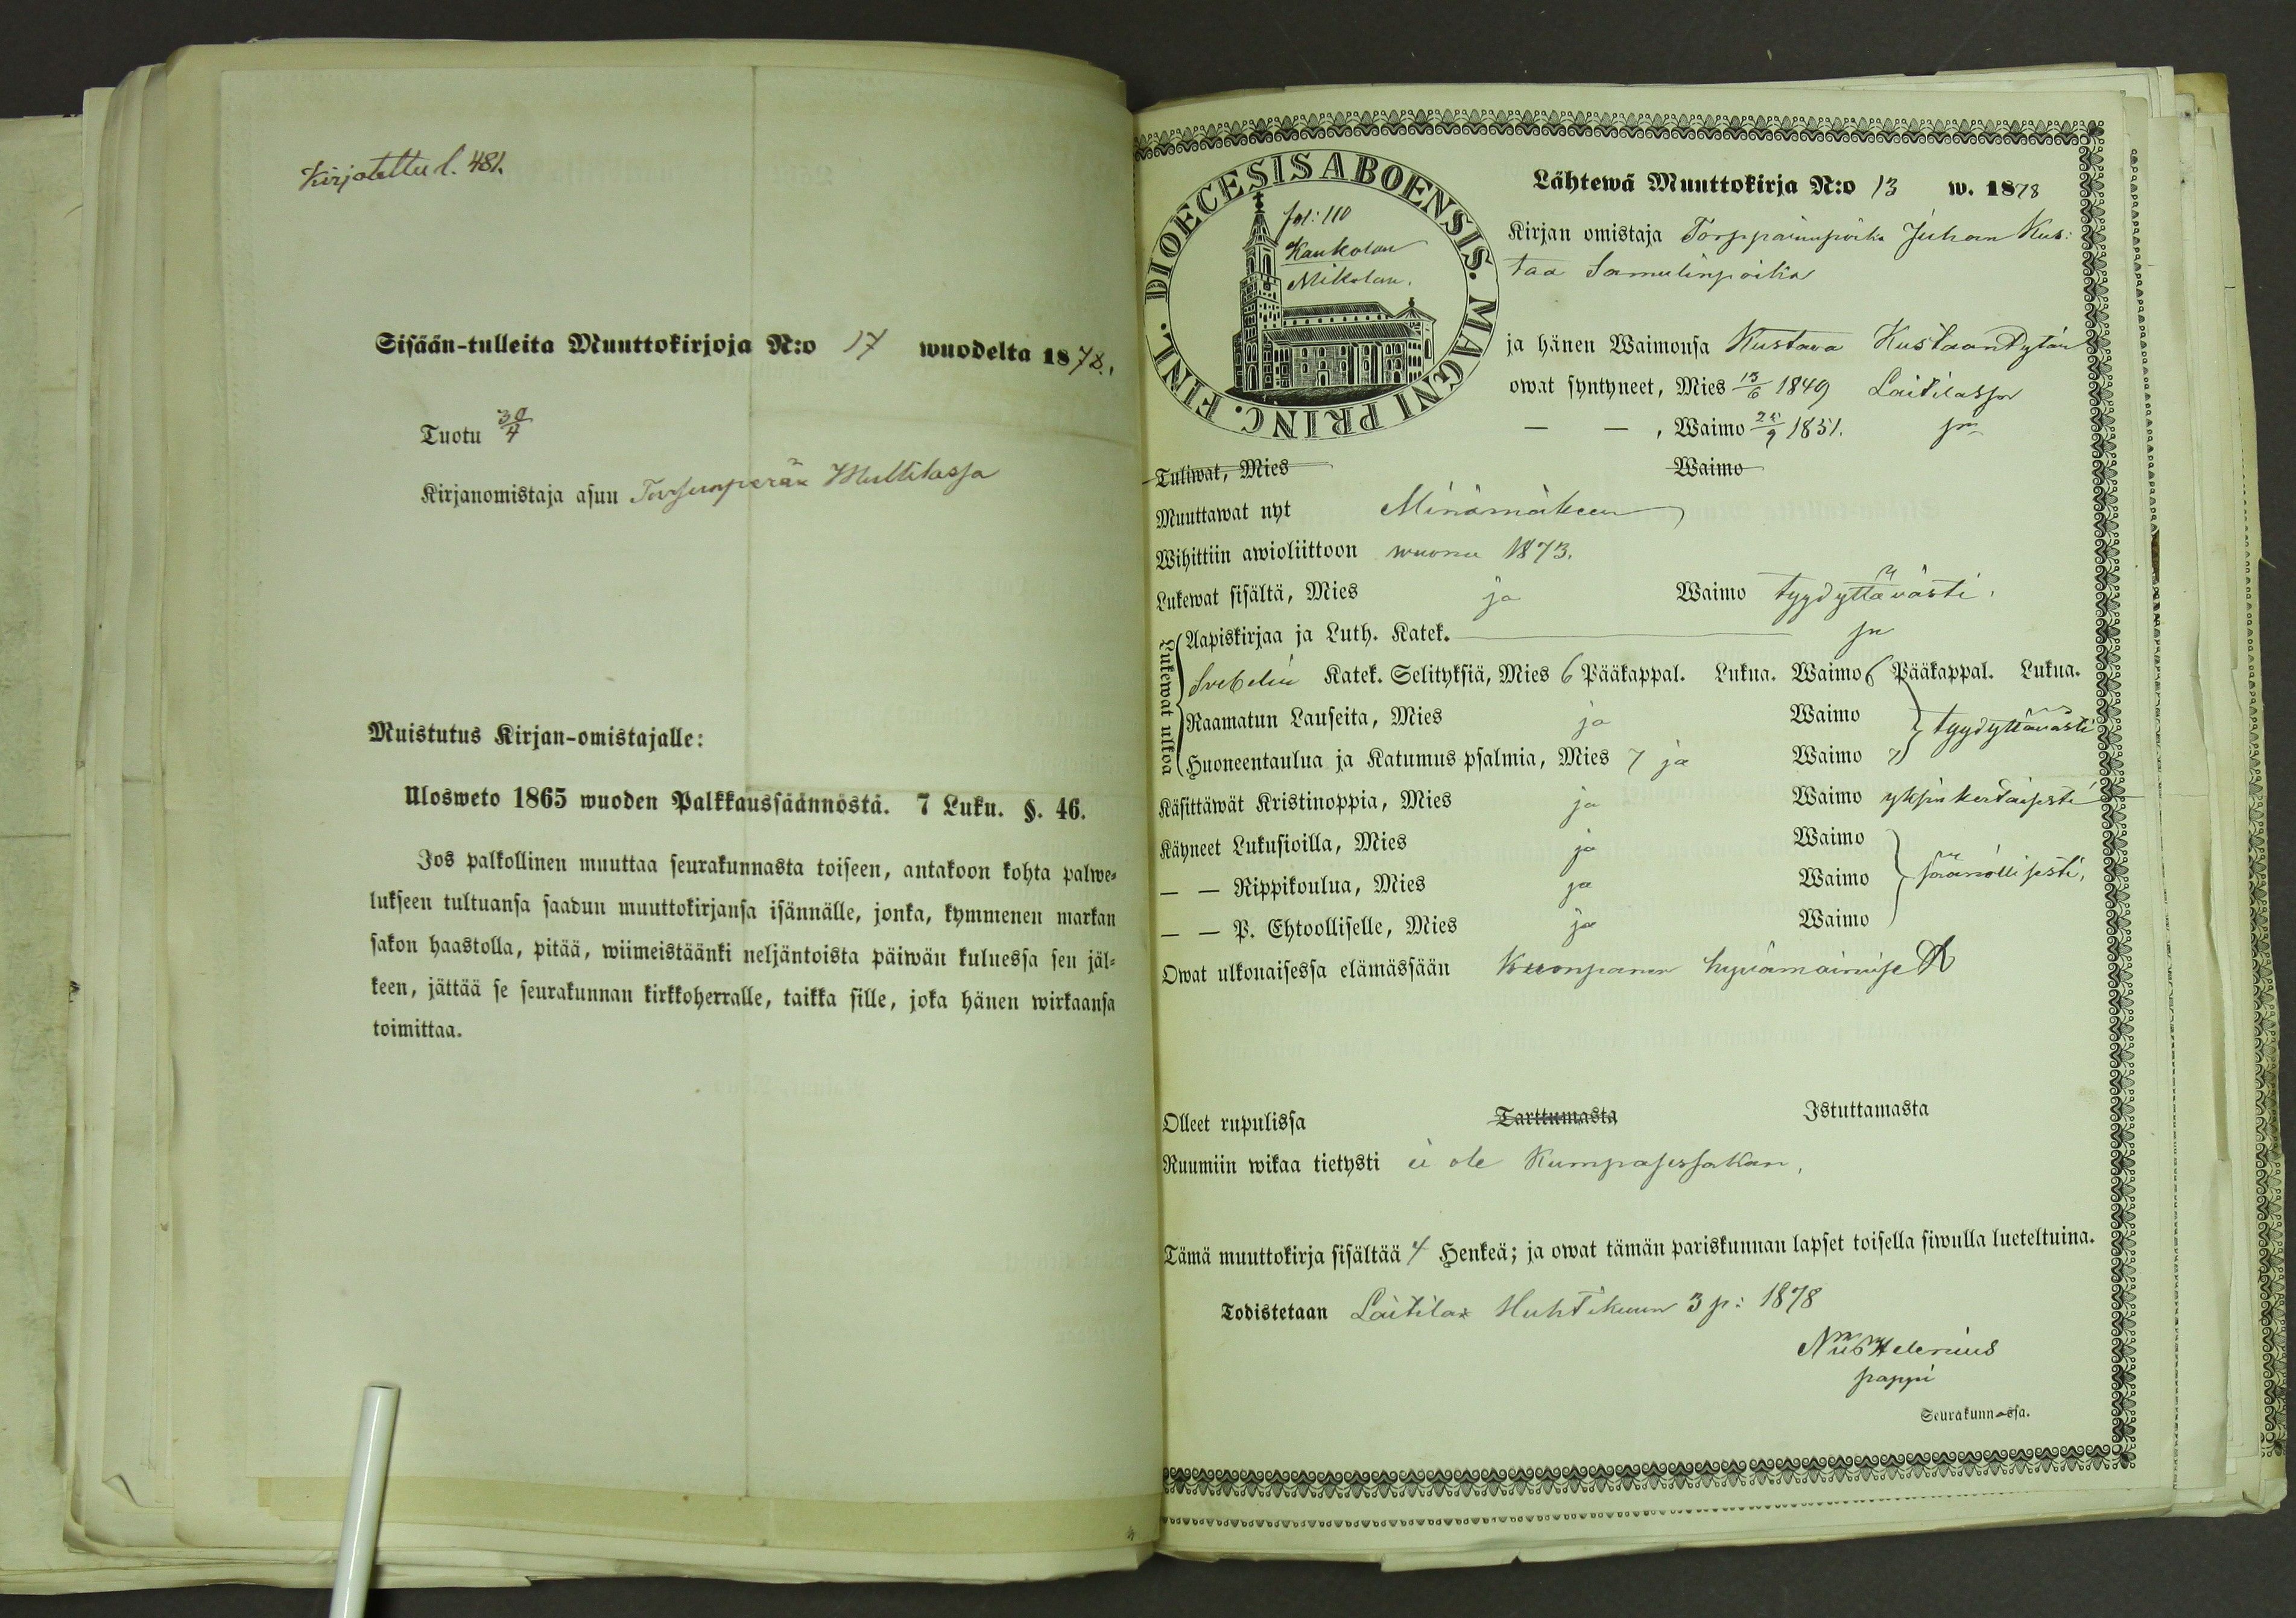 Kirjotettu l. 481.
Sisään-tulleita Muuttokirjoja N:o 17 wuodelta 1878.
Tuotu 30/4
Kirjanomistaja asuu Multilassa
Muistutus Kirjan-omistajalle:
Ulosweto 1865 wuoden Palkkaussäännöstä. 7 Luku. §. 46.
Jos palkollinen muuttaa seurakunnasta toiseen, antakoon kohta palwe-
lukseen tultuansa saadun muuttokirjansa isännälle, jonka, kymmenen markan
sakon haastolla, pitää, wiimeistäänki neljäntoista päiwän kuluessa sen jäl-
keen, jättää se seurakunnan kirkkoherralle, taikka sille, joka hänen wirkaansa
toimittaa.
DIOECESIS ABOENSIS. MAGNI PRINC. FINL.
fol: 110
Kaukolan
Mikolan.
Lähtewä Muuttokirja N:o 13 w. 1878
Kirjan omistaja Torpparinpoika Juhan Kus:
taa Samulinpoika
ja hänen Waimonsa Kustava Kustaantytär
owat syntyneet, Mies 13/6 1849 Laitilassa
— — , Waimo 1851.
Tuliwat, Mies Waimo
Muuttawat nyt Minämäkeen
Wihittiin awioliittoon wuonna 1873.
Lukewat sisältä, Mies ja Waimo tyydyttävästi.
Lukewat ulkoa
Aapiskirjaa ja Luth. Katek.
Svebelii Katek. Selityksiä, Mies 6 Pääkappal. Lukua. Waimo 6 Pääkappal. Lukua.
Raamatun Lauseita, Mies ja Waimo tyydyttävästi
Huoneentaulua ja Katumus psalmia, Mies 7 ja Waimo 7
Käsittäwät Kristinoppia, Mies ja Waimo yksinkertaisesti
Käyneet Lukusioilla, Mies ja Waimo
— — Rippikoulua, Mies ja Waimo säännöllisesti,
— — P. Ehtoolliselle, Mies ja Waimo
Owat ulkonaisessa elämässään hyvämainiset
Olleet rupulissa Tarttumasta Istuttamasta
Ruumiin wikaa tietysti ei ole kumpasessakan,
Tämä muuttokirja sisältää 4 Henkeä; ja owat tämän pariskunnan lapset toisella siwulla lueteltuina.
Todistetaan Laitilas Huhtikuun 3 p: 1878
Helenius
pappi
Seurakunnassa.